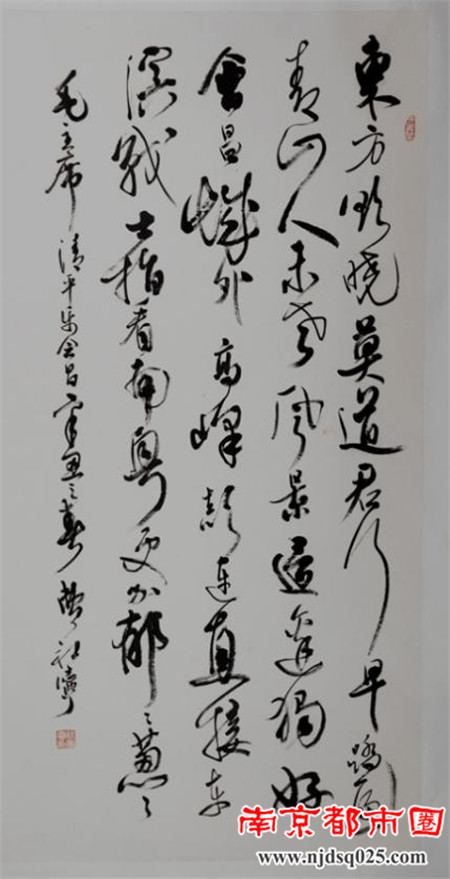 東方欲晓莫道君行早踏遍
青山人未老风景這邊獨好
會昌城外高峰顛连直接东
溟戰士指看南粤更加郁々葱々
毛主席清平乐会昌之春
南京都市圈
www.njdsq025.com